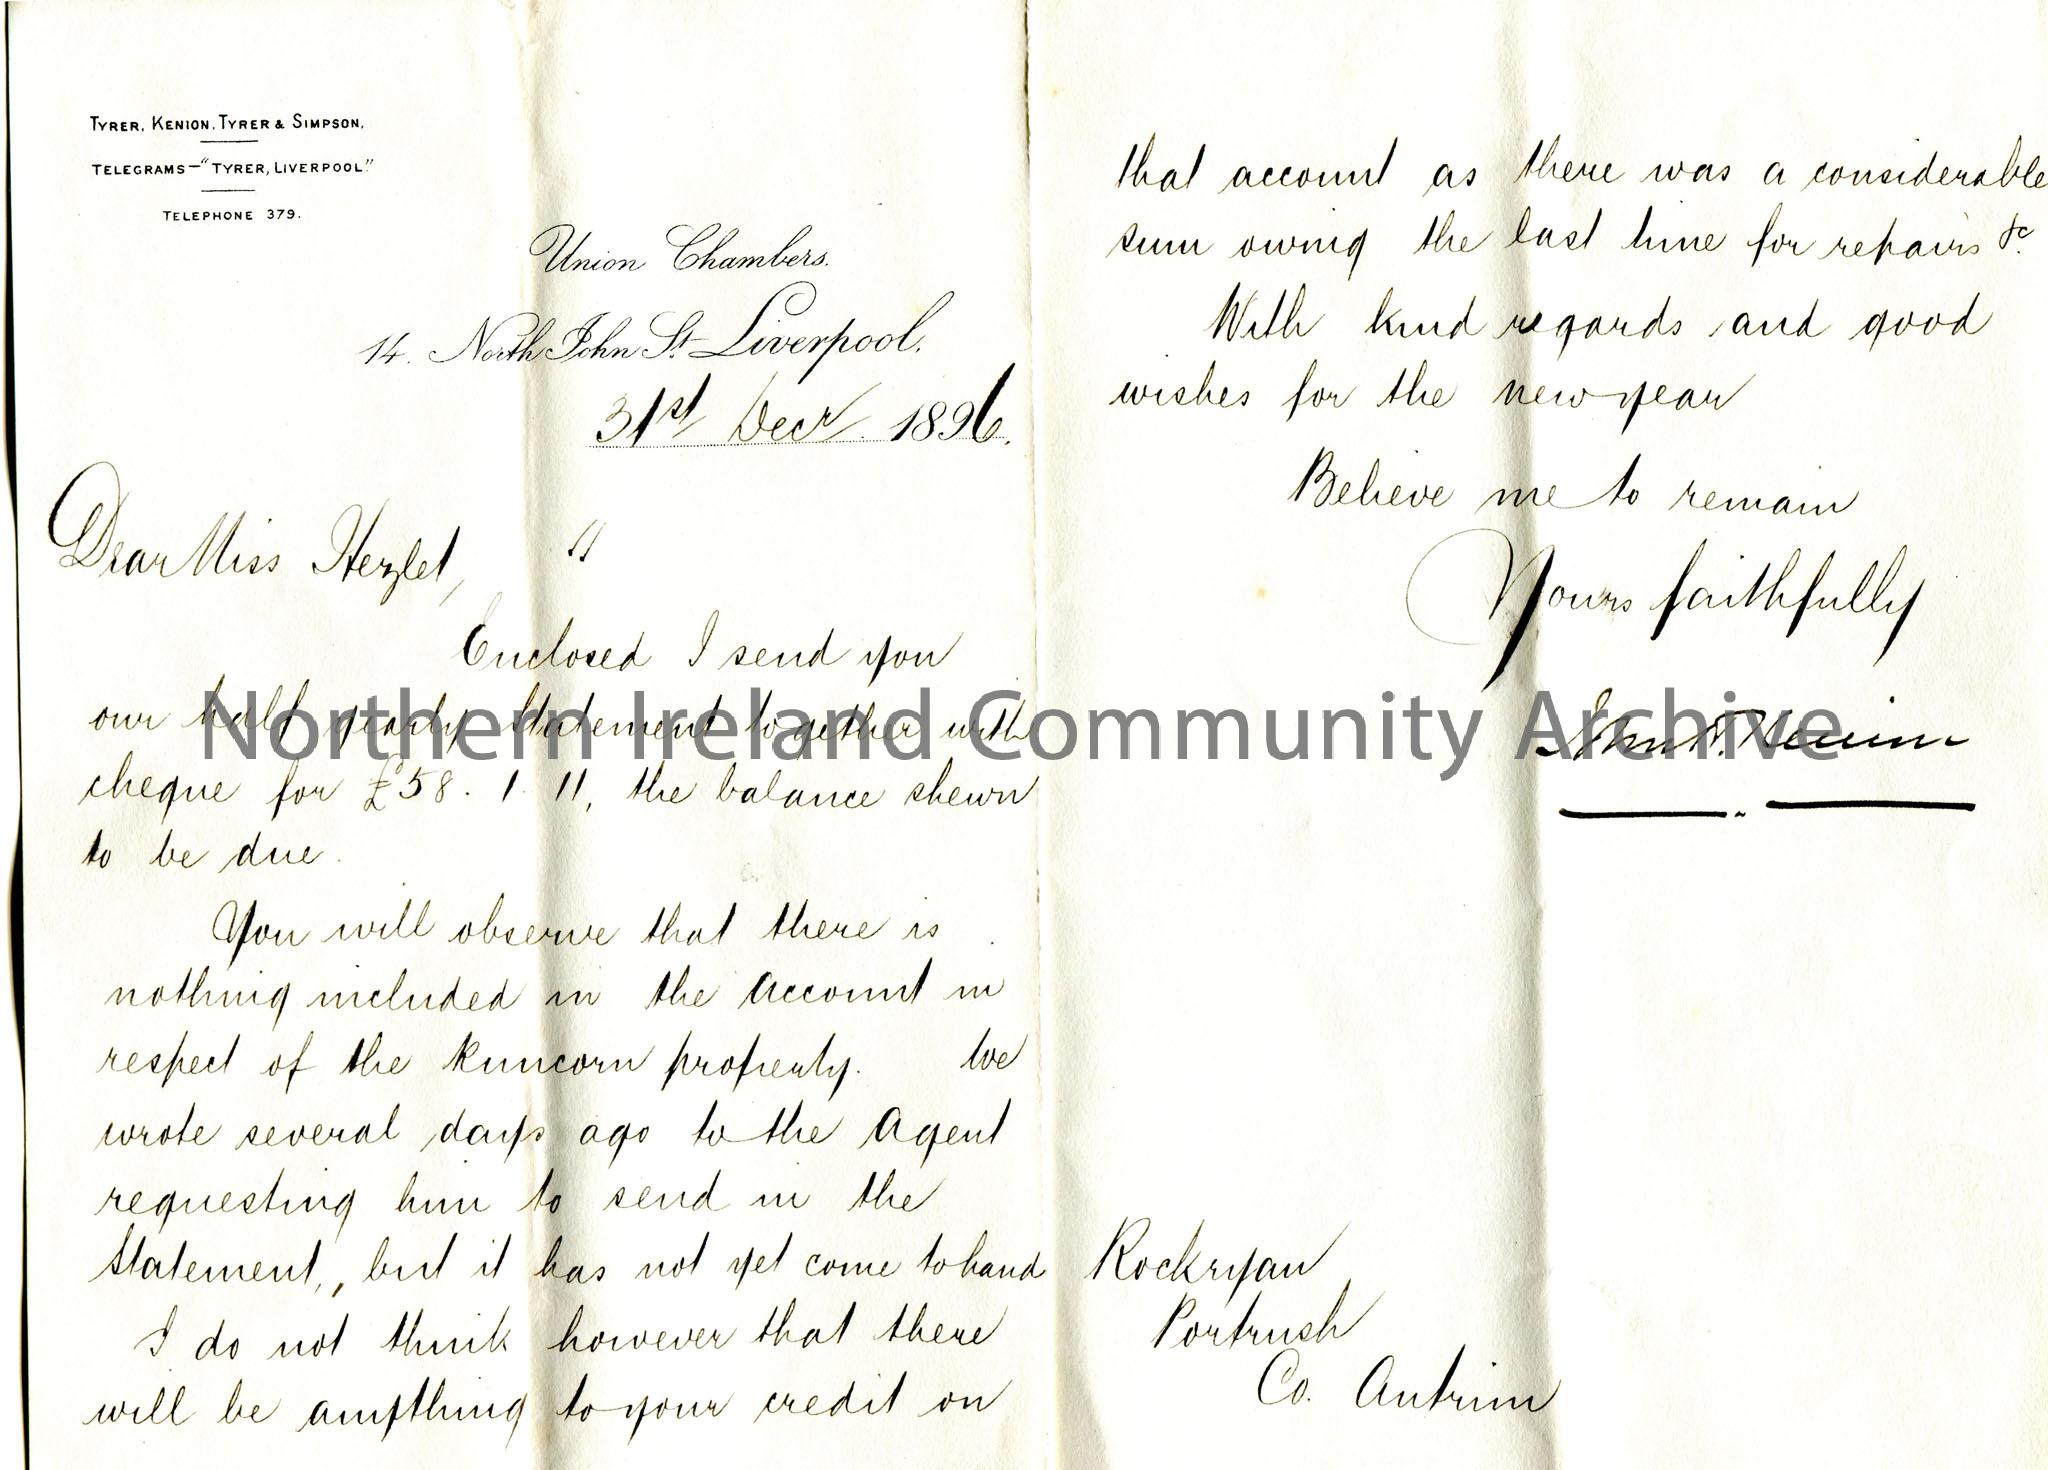 TYRER, KENION, TYRER & SIMPSON,
TELEGRAMS—"TYRER, LIVERPOOL."
TELEPHONE 379.
Union Chambers.
14. North John St. Liverpool.
31st Decr. 1896.
Dear Miss Hezlet,
Enclosed I send you
our half yearly Statement together with
cheque for £58. 1. 11, the balance shewn
to be due.
You will observe that there is
nothing included in the Account in
respect of the Runcorn property. We
wrote several days ago to the Agent
requesting him to send in the
Statement, but it has not yet come to hand
I do not think however that there
will be anything to your credit on
that account as there was a considerable
sum owing the last time for repairs &c.
With kind regards and good
wishes for the new year
Believe me to remain
Yours faithfully
Rockryan
Portrush
Co. Antrim
Northern Ireland Community Archive